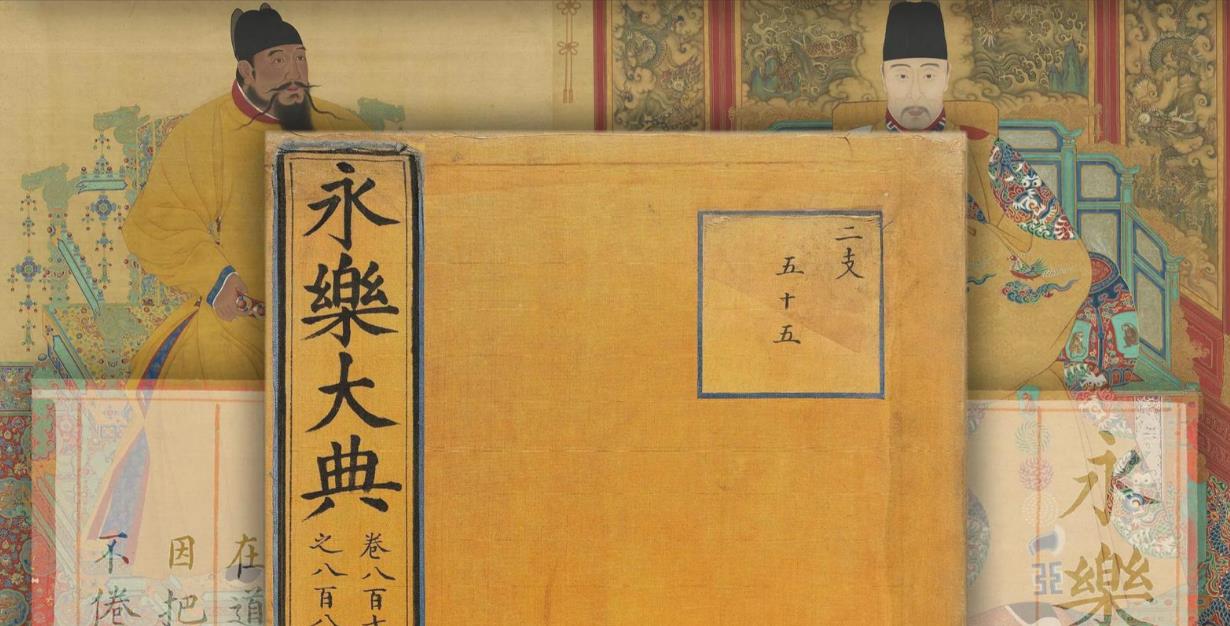 永樂
二支
五十五
永樂大典
卷八百
之八百
在道
因把
不倦